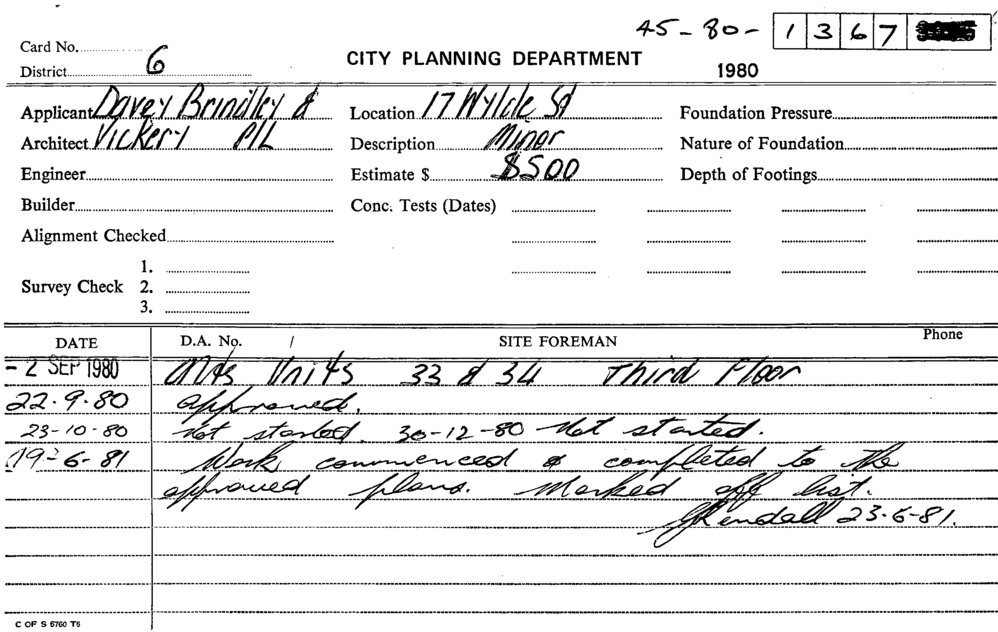 45-80-1367
Card No.
District 6
CITY PLANNING DEPARTMENT
1980
Applicant Davey Brindley &
Location 17 Wylde St
Foundation Pressure
Architect Vickery P/L
Description Minor
Nature of Foundation
Engineer
Estimate $ $500
Depth of Footings
Builder
Conc. Tests (Dates)
Alignment Checked
1.
Survey Check 2.
3.
DATE D.A. No. / SITE FOREMAN Phone
- 2 SEP 1980 Alts Units 33 & 34 Third Floor
22-9-80 approved.
23-10-80 Not started. 30-12-80 Not started.
19-6-81 Work commenced & completed to the
approved plans. Marked off list.
Kendall 23-6-81.
C OF S 6760 T6